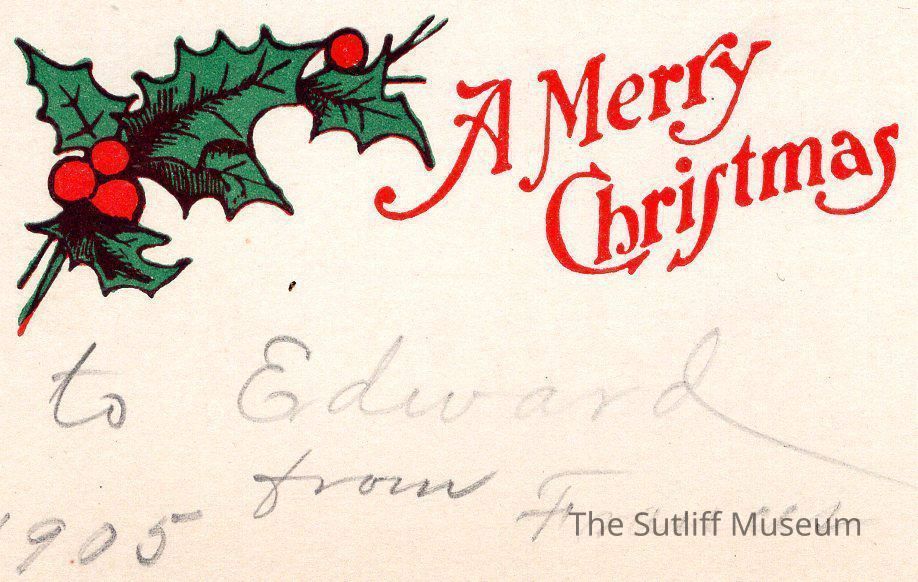 A Merry
Christmas
to Edward
from
1905
The Sutliff Museum